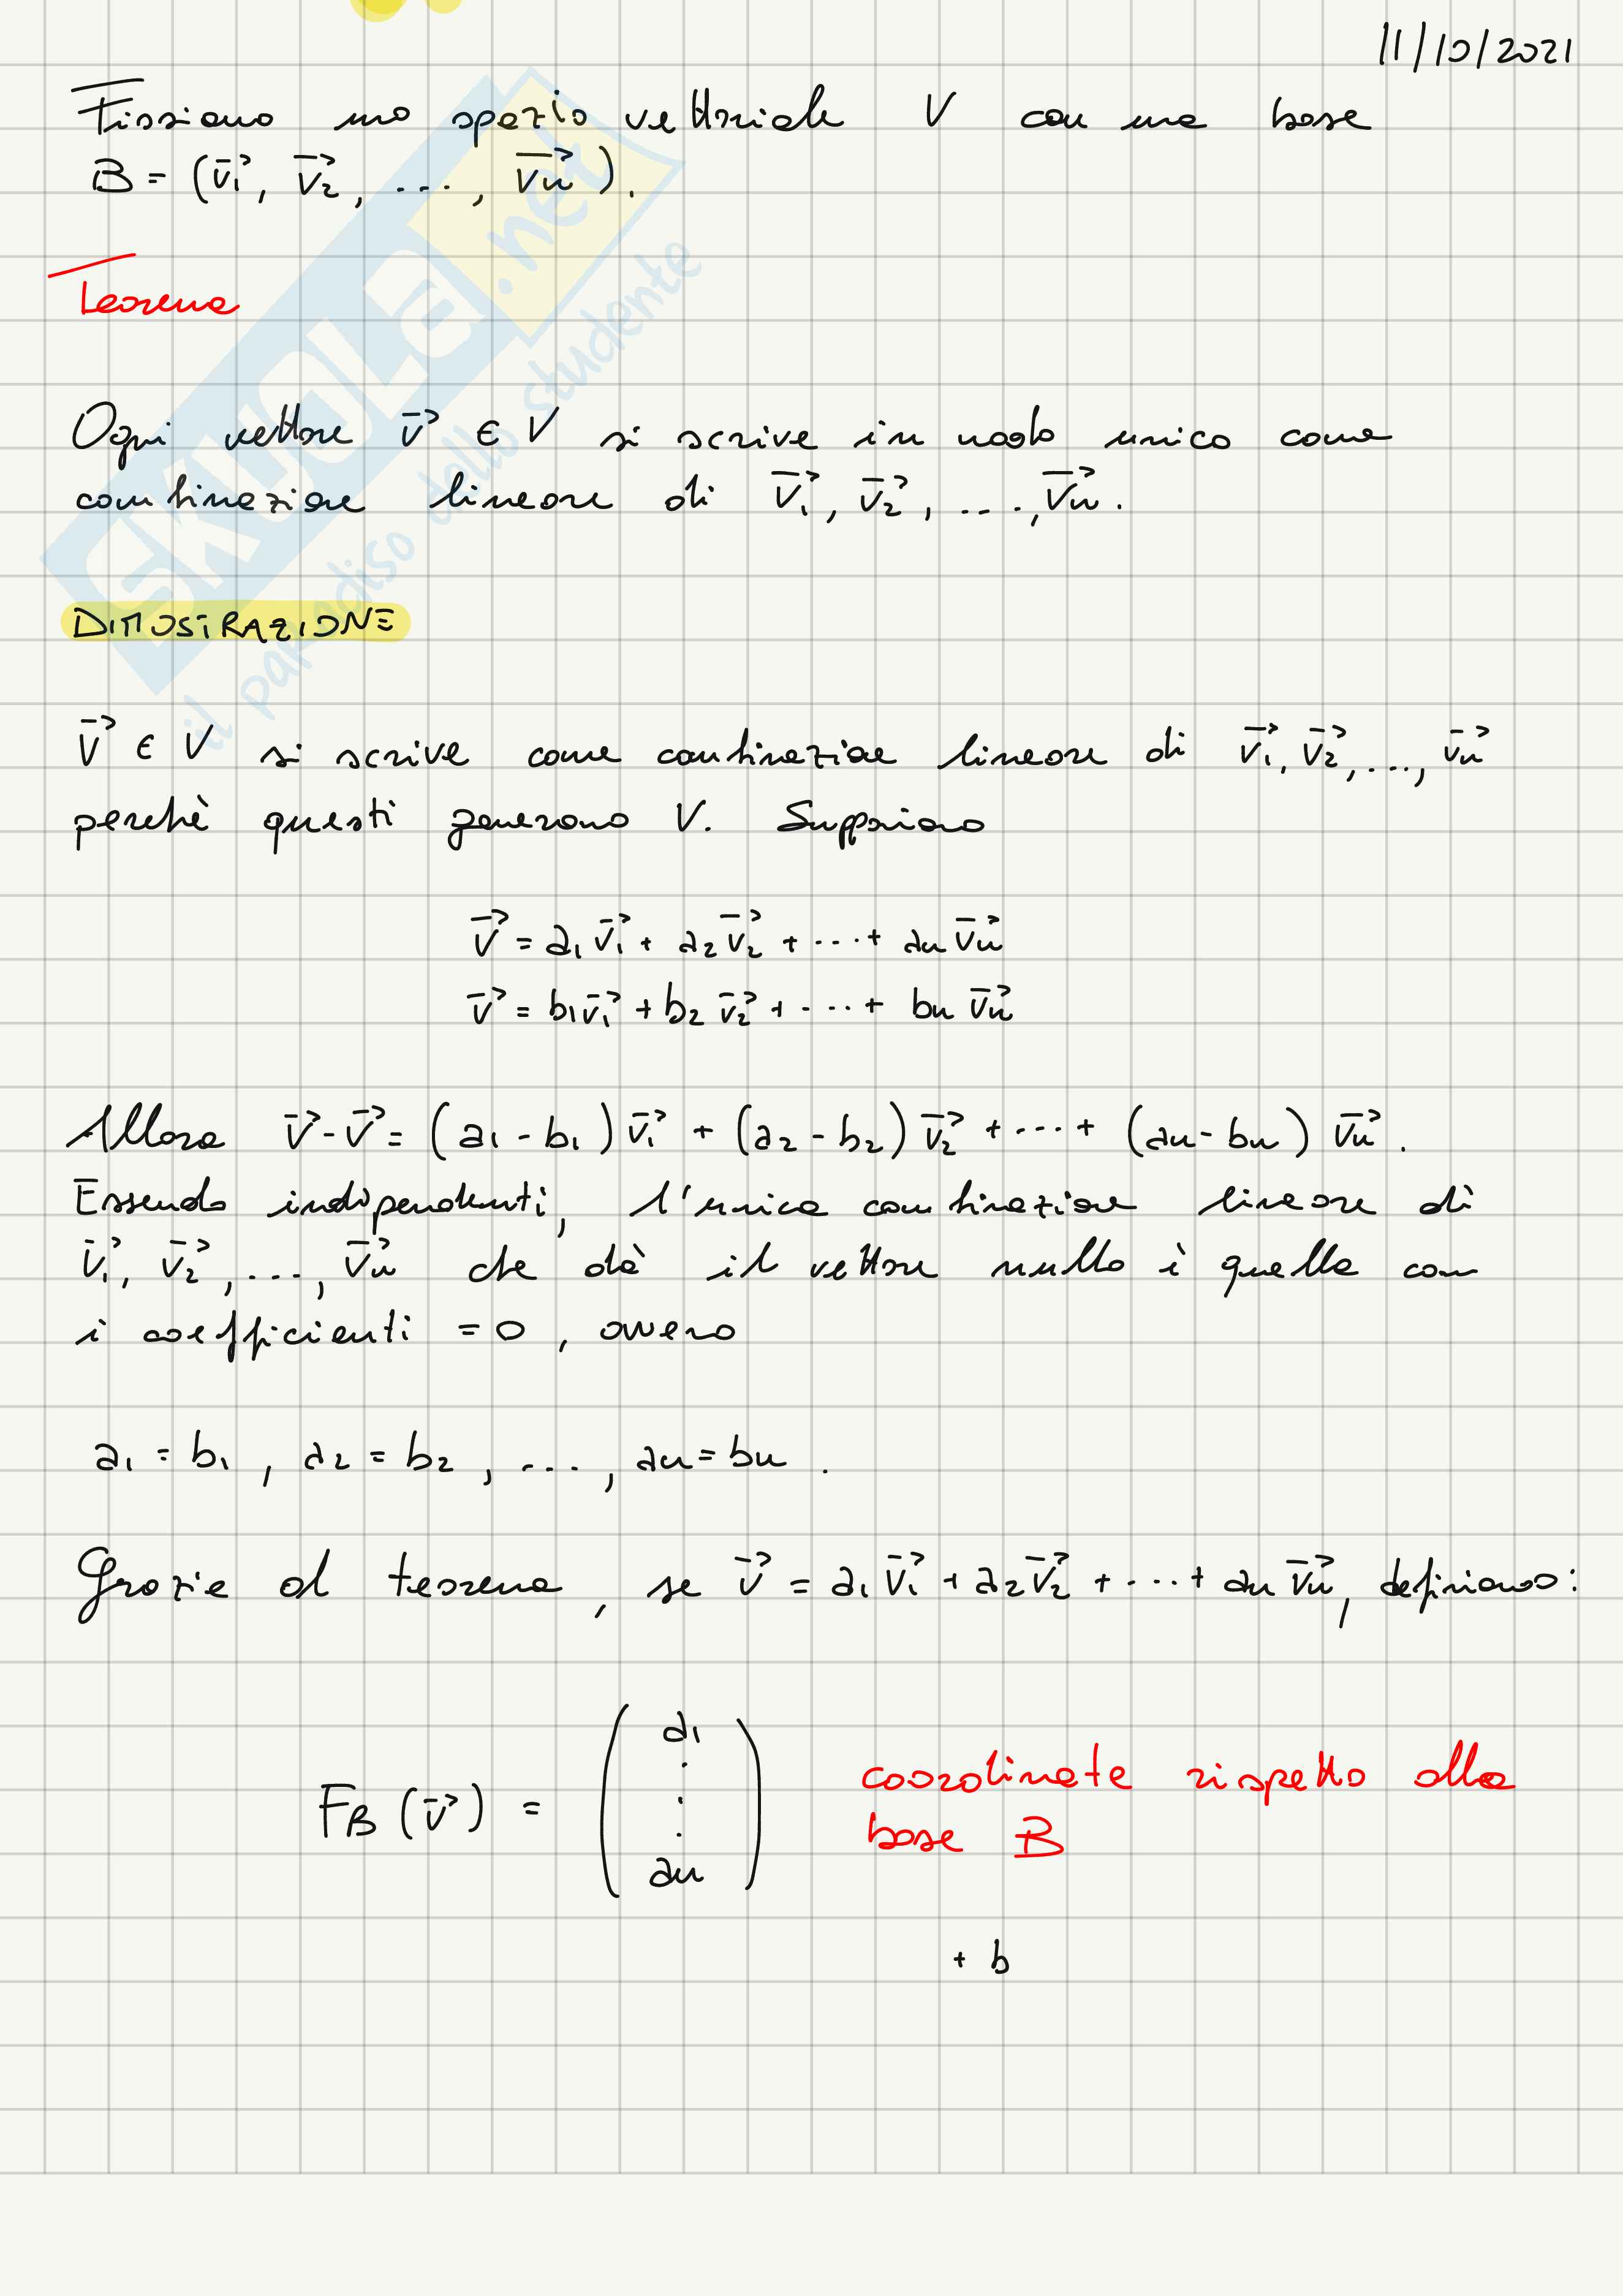 11/10/2021
Fissiamo uno spazio vettoriale V con una base
B = (v⃗₁, v⃗₂, ...., v⃗ₙ).
Teorema
Ogni vettore v⃗ ∈ V si scrive in modo unico come
combinazione lineare di v⃗₁, v⃗₂, ...., v⃗ₙ.
DIMOSTRAZIONE
v⃗ ∈ V si scrive come combinazione lineare di v⃗₁, v⃗₂, ..., v⃗ₙ
perchè questi generano V. Supponiamo
v⃗ = a₁v⃗₁ + a₂v⃗₂ + ....+ aₙv⃗ₙ
v⃗ = b₁v⃗₁ + b₂v⃗₂ + ....+ bₙv⃗ₙ
Allora v⃗-v⃗ = (a₁-b₁)v⃗₁ + (a₂-b₂)v⃗₂ + ....+ (aₙ-bₙ)v⃗ₙ.
Essendo indipendenti, l'unica combinazione lineare di
v⃗₁, v⃗₂, ...., v⃗ₙ che dà il vettore nullo è quella con
i coefficienti =0, ovvero
a₁ = b₁, a₂ = b₂, ...., aₙ = bₙ.
Grazie al teorema, se v⃗ = a₁v⃗₁ + a₂v⃗₂ + ....+ aₙv⃗ₙ, definiamo:
F_B (v⃗) = ( a₁ ... aₙ ) coordinate rispetto alla
base B
+ b
SKUOLA.net
il paradiso dello studente